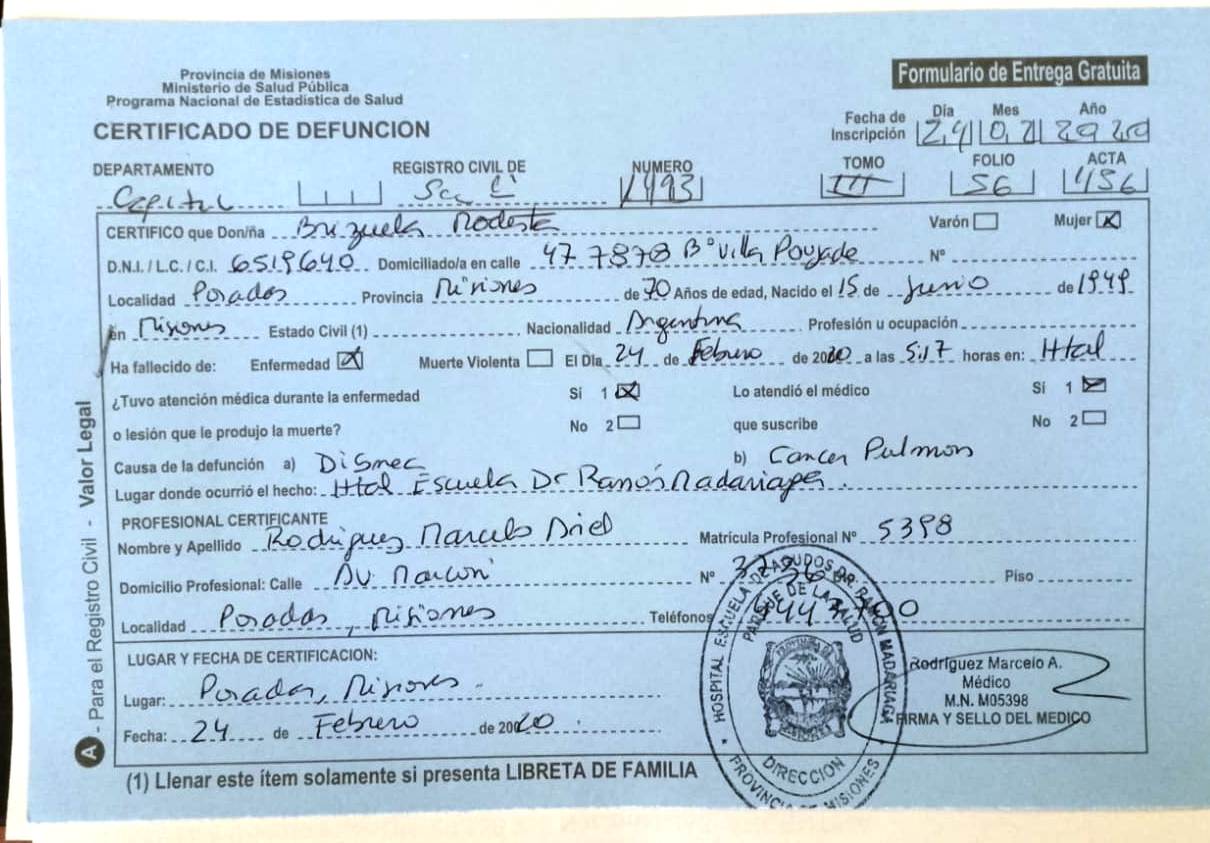 Provincia de Misiones
Ministerio de Salud Pública
Programa Nacional de Estadística de Salud
Formulario de Entrega Gratuita
CERTIFICADO DE DEFUNCION
Fecha de Inscripción Día Mes Año
24 02 2020
DEPARTAMENTO REGISTRO CIVIL DE NUMERO TOMO FOLIO ACTA
Capital Sec 1493 III 56 456
CERTIFICO que Don/ña Brizuela Modesta Varón Mujer X
D.N.I. / L.C. / C.I. 6519640 Domiciliado/a en calle 47 7878 B° Villa Poujade N°
Localidad Posadas Provincia Misiones de 70 Años de edad, Nacido el 15 de Junio de 1949
en Misiones Estado Civil (1) Nacionalidad Argentina Profesión u ocupación
Ha fallecido de: Enfermedad X Muerte Violenta El Día 24 de Febrero de 2020 a las 5:17 horas en: Htal
¿Tuvo atención médica durante la enfermedad Sí 1 X Lo atendió el médico Sí 1 X
o lesión que le produjo la muerte? No 2 que suscribe No 2
Causa de la defunción a) b) Cancer Pulmon
Lugar donde ocurrió el hecho: Htal Escuela Dr Ramón Madariaga.
PROFESIONAL CERTIFICANTE
Nombre y Apellido Rodriguez Marcelo Ariel Matrícula Profesional N° 5398
Domicilio Profesional: Calle Av. Marconi N° Piso
Localidad Posadas, Misiones Teléfonos
LUGAR Y FECHA DE CERTIFICACION:
Lugar: Posadas, Misiones.
Fecha: 24 de Febrero de 2020.
HOSPITAL ESCUELA DE AGUDOS DR. RAMON MADARIAGA
PARQUE DE LA SALUD
DIRECCION
PROVINCIA DE MISIONES
Rodríguez Marcelo A.
Médico
M.N. M05398
FIRMA Y SELLO DEL MEDICO
(1) Llenar este ítem solamente si presenta LIBRETA DE FAMILIA
A - Para el Registro Civil - Valor Legal